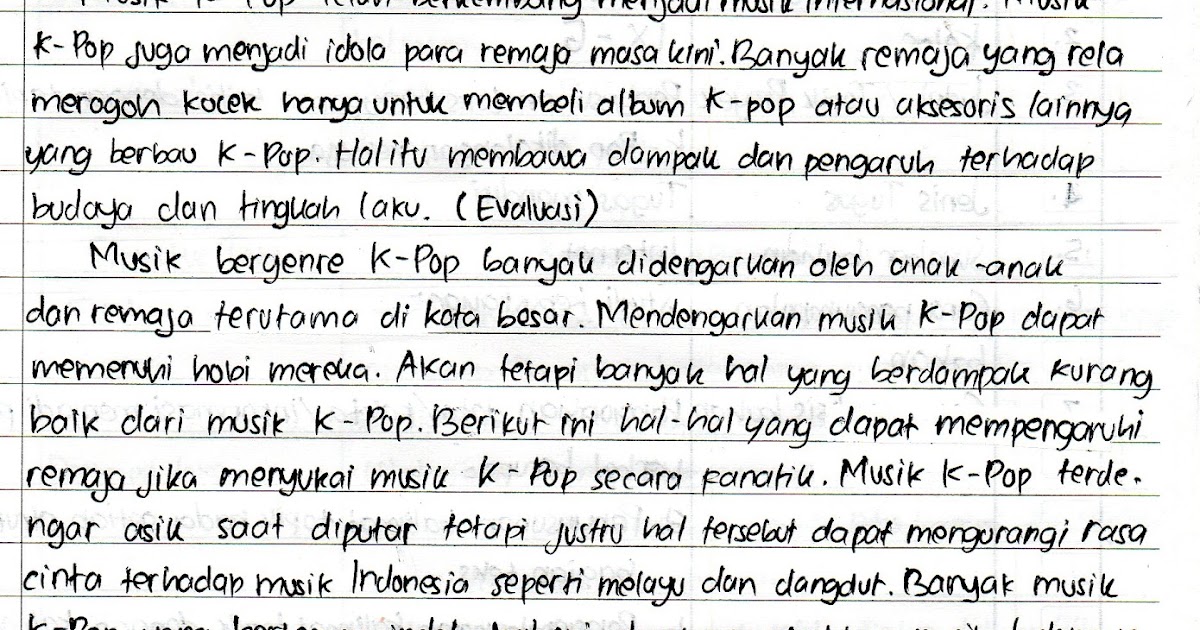 Musik K-Pop telah berkembang menjadi musik internasional. Musik
K-Pop juga menjadi idola para remaja masa kini. Banyak remaja yang rela
merogoh kocek hanya untuk membeli album K-pop atau aksesoris lainnya
yang berbau K-Pop. Hal itu membawa dampak dan pengaruh terhadap
budaya dan tingkah laku. (Evaluasi)
Musik bergenre K-Pop banyak didengarkan oleh anak-anak
dan remaja terutama di kota besar. Mendengarkan musik K-Pop dapat
memenuhi hobi mereka. Akan tetapi banyak hal yang berdampak kurang
baik dari musik K-Pop. Berikut ini hal-hal yang dapat mempengaruhi
remaja jika menyukai musik K-Pop secara fanatik. Musik K-Pop terde-
ngar asik saat diputar tetapi justru hal tersebut dapat mengurangi rasa
cinta terhadap musik Indonesia seperti melayu dan dangdut. Banyak musik
K-Pop yang